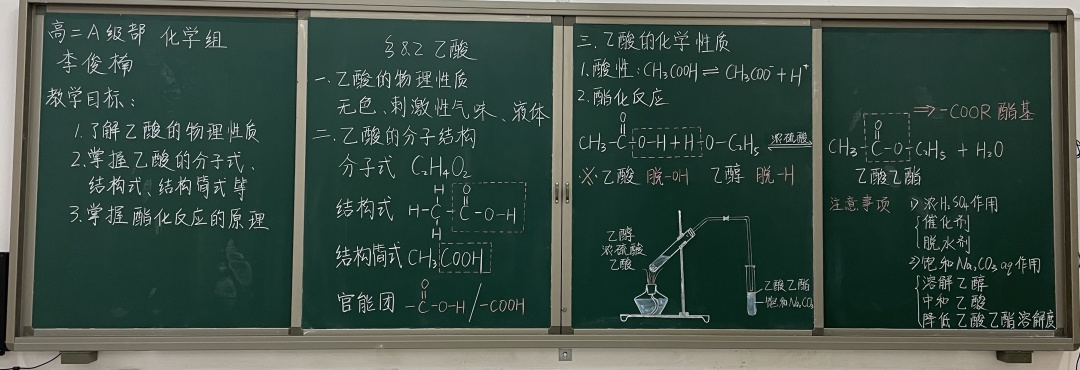 高二A级部 化学组
李俊楠
教学目标：
1.了解乙酸的物理性质
2.掌握乙酸的分子式、
结构式、结构简式等
3.掌握酯化反应的原理
§8.2 乙酸
一.乙酸的物理性质
无色、刺激性气味、液体
二.乙酸的分子结构
分子式 C₂H₄O₂
H O
结构式 H-C-C-O-H
H
结构简式 CH₃COOH
O
官能团 -C-O-H/-COOH
三.乙酸的化学性质
1.酸性:CH₃COOH⇌CH₃COO⁻+H⁺
2.酯化反应
O
CH₃-C-O-H+H-O-C₂H₅ 浓硫酸
※乙酸 脱-OH 乙醇 脱-H
乙醇
浓硫酸
乙酸
乙酸乙酯
饱和Na₂CO₃
⇒-COOR 酯基
O
CH₃-C-O-C₂H₅ + H₂O
乙酸乙酯
注意事项 1)浓H₂SO₄作用
催化剂
脱水剂
2)饱和Na₂CO₃ aq作用
溶解乙醇
中和乙酸
降低乙酸乙酯溶解度